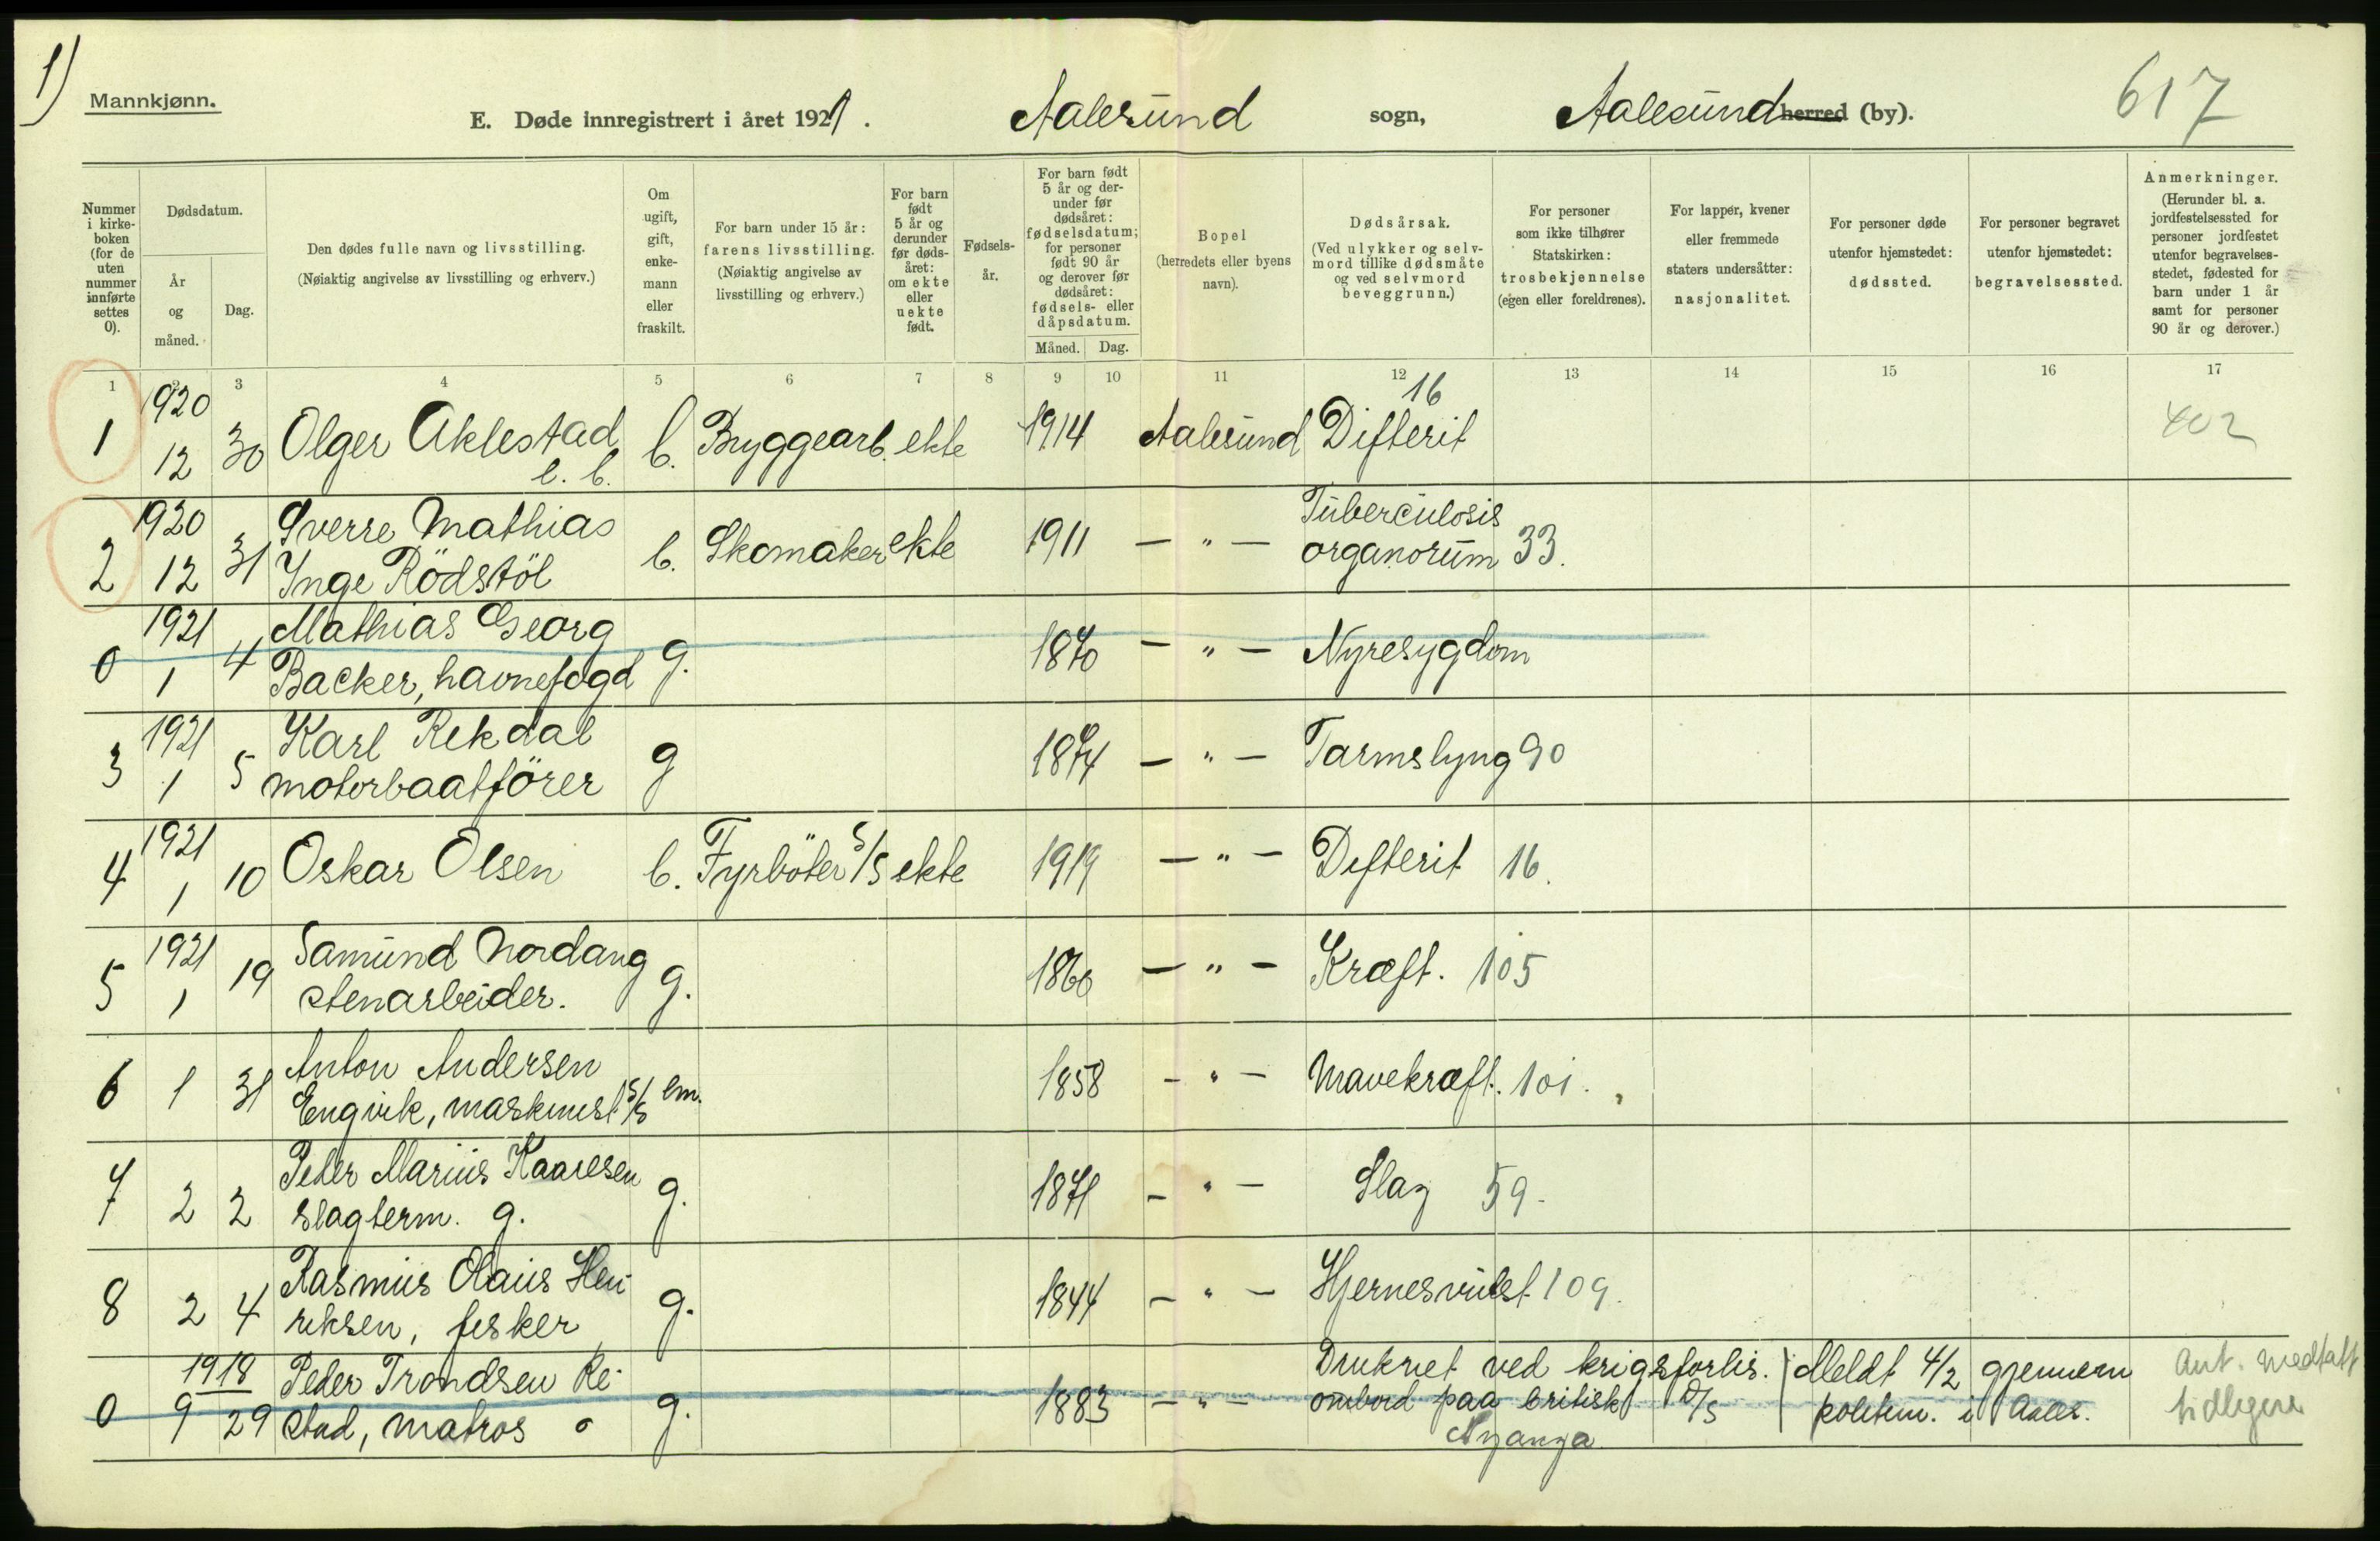 1)
Mannkjønn.
E. Døde innregistrert i året 1921. Aalesund sogn, Aalesund herred (by). 617
Nummer i kirke-boken (for de uten nummer innførte settes 0).
Dødsdatum.
År og måned.
Dag.
Den dødes fulle navn og livsstilling.
(Nøiaktig angivelse av livsstilling og erhverv.)
Om ugift, gift, enke-mann eller fraskilt.
For barn under 15 år: farens livsstilling.
(Nøiaktig angivelse av livsstilling og erhverv.)
For barn født 5 år og derunder før døds-året: om ekte eller uekte født.
Fødsels-år.
For barn født 5 år og der-under før dødsåret: fødselsdatum; for personer født 90 år og derover før dødsåret: fødsels- eller dåpsdatum.
Måned. Dag.
Bopel (herredets eller byens navn).
Dødsårsak.
(Ved ulykker og selv-mord tillike dødsmåte og ved selvmord beveggrunn.)
For personer som ikke tilhører Statskirken: trosbekjennelse (egen eller foreldrenes).
For lapper, kvener eller fremmede staters undersåtter: nasjonalitet.
For personer døde utenfor hjemstedet: dødssted.
For personer begravet utenfor hjemstedet: begravelsessted.
Anmerkninger.
(Herunder bl. a. jordfestelsessted for personer jordfestet utenfor begravelses-stedet, fødested for barn under 1 år samt for personer 90 år og derover.)
1 2 3 4 5 6 7 8 9 10 11 12 13 14 15 16 17
1920 16
1 12 30 Olger Aklestad b. Bryggearb. ekte 1914 Aalesund Difterit 402
l. b.
1920 Sverre Mathias Tuberculosis
2 12 31 Inge Rödstöl b. Skomaker ekte 1911 — " — organorum 33.
1921 Mathias Georg
0 1 4 Backer, havnefogd g. 1870 — " — Nyresygdom
1921 Karl Rekdal
3 1 5 motorbaatförer g 1874 — " — Tarmslyng 90
1921
4 1 10 Oskar Olsen b. Fyrböter S/S ekte 1919 — " — Difterit 16.
1921 Samund Nordang
5 1 19 stenarbeider. g. 1860 — " — Kræft. 105
Anton Andersen
6 1 31 Engvik, maskinist S/S em. 1858 — " — Mavekræft. 101.
Peter Marius Kaaresen
7 2 2 slagterm. g. g. 1871 — " — Slag 59.
Rasmus Olaus Hen-
8 2 4 riksen, fisker g. 1844 — " — Hjernesvulst 109.
1918 Peder Trondsen Re- Druknet ved krigsforlis. Meldt 4/2 gjennem Ant. medtatt
0 9 29 stad, matros g. 1883 — " — ombord paa britisk D/S politim. i Aales. tidligere
Nyanza